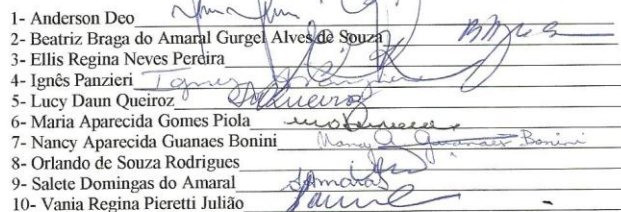 1- Anderson Deo
2- Beatriz Braga do Amaral Gurgel Alves de Souza
3- Ellis Regina Neves Pereira
4- Ignês Panzieri Ignes Panzieri
5- Lucy Daun Queiroz LDQueiroz
6- Maria Aparecida Gomes Piola
7- Nancy Aparecida Guanaes Bonini Nancy A. Guanaes Bonini
8- Orlando de Souza Rodrigues
9- Salete Domingas do Amaral
10- Vania Regina Pieretti Julião